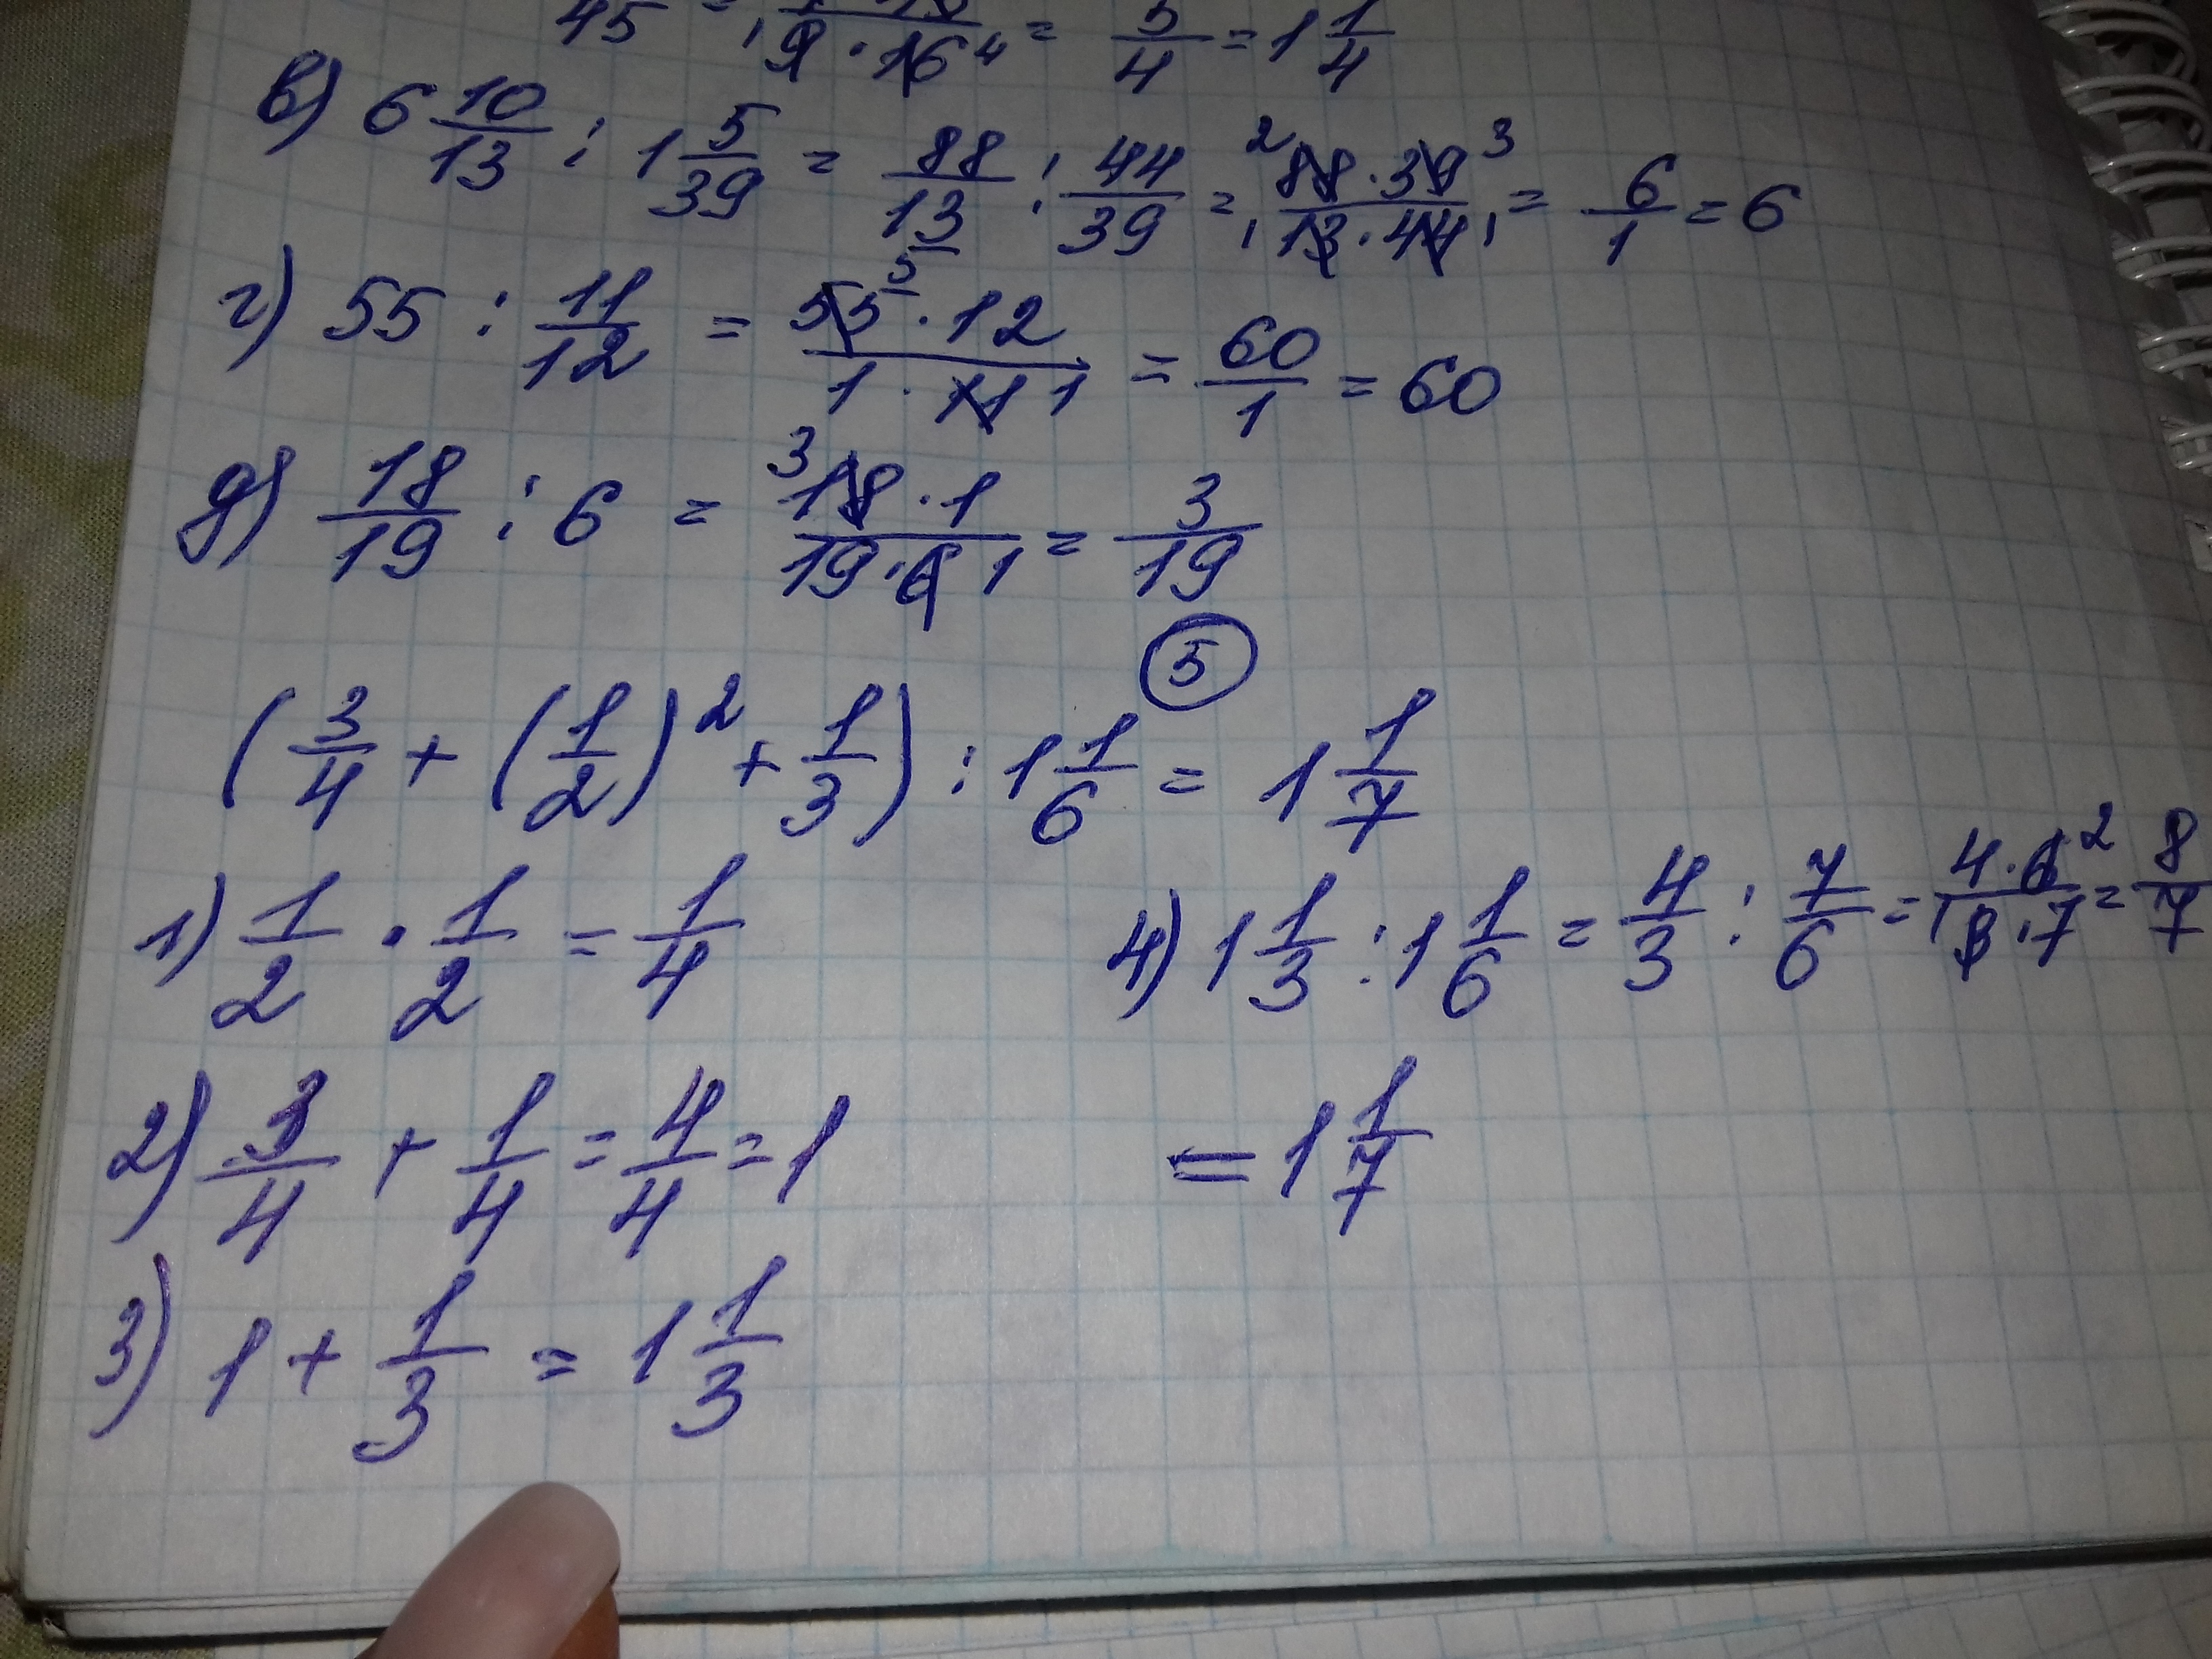 45 = 9 · 16 4 = 5/4 = 1 1/4
в) 6 10/13 : 1 5/39 = 88/13 : 44/39 = 2 88 · 39 3 / 1 13 · 44 1 = 6/1 = 6
г) 55 : 11/12 = 55 5 · 12 / 1 · 11 1 = 60/1 = 60
д) 18/19 : 6 = 3 18 · 1 / 19 · 6 1 = 3/19
5
(3/4 + (1/2)² + 1/3) : 1 1/6 = 1 1/7
1) 1/2 · 1/2 = 1/4
2) 3/4 + 1/4 = 4/4 = 1
3) 1 + 1/3 = 1 1/3
4) 1 1/3 : 1 1/6 = 4/3 : 7/6 = 4 · 6 2 / 1 3 · 7 = 8/7
= 1 1/7